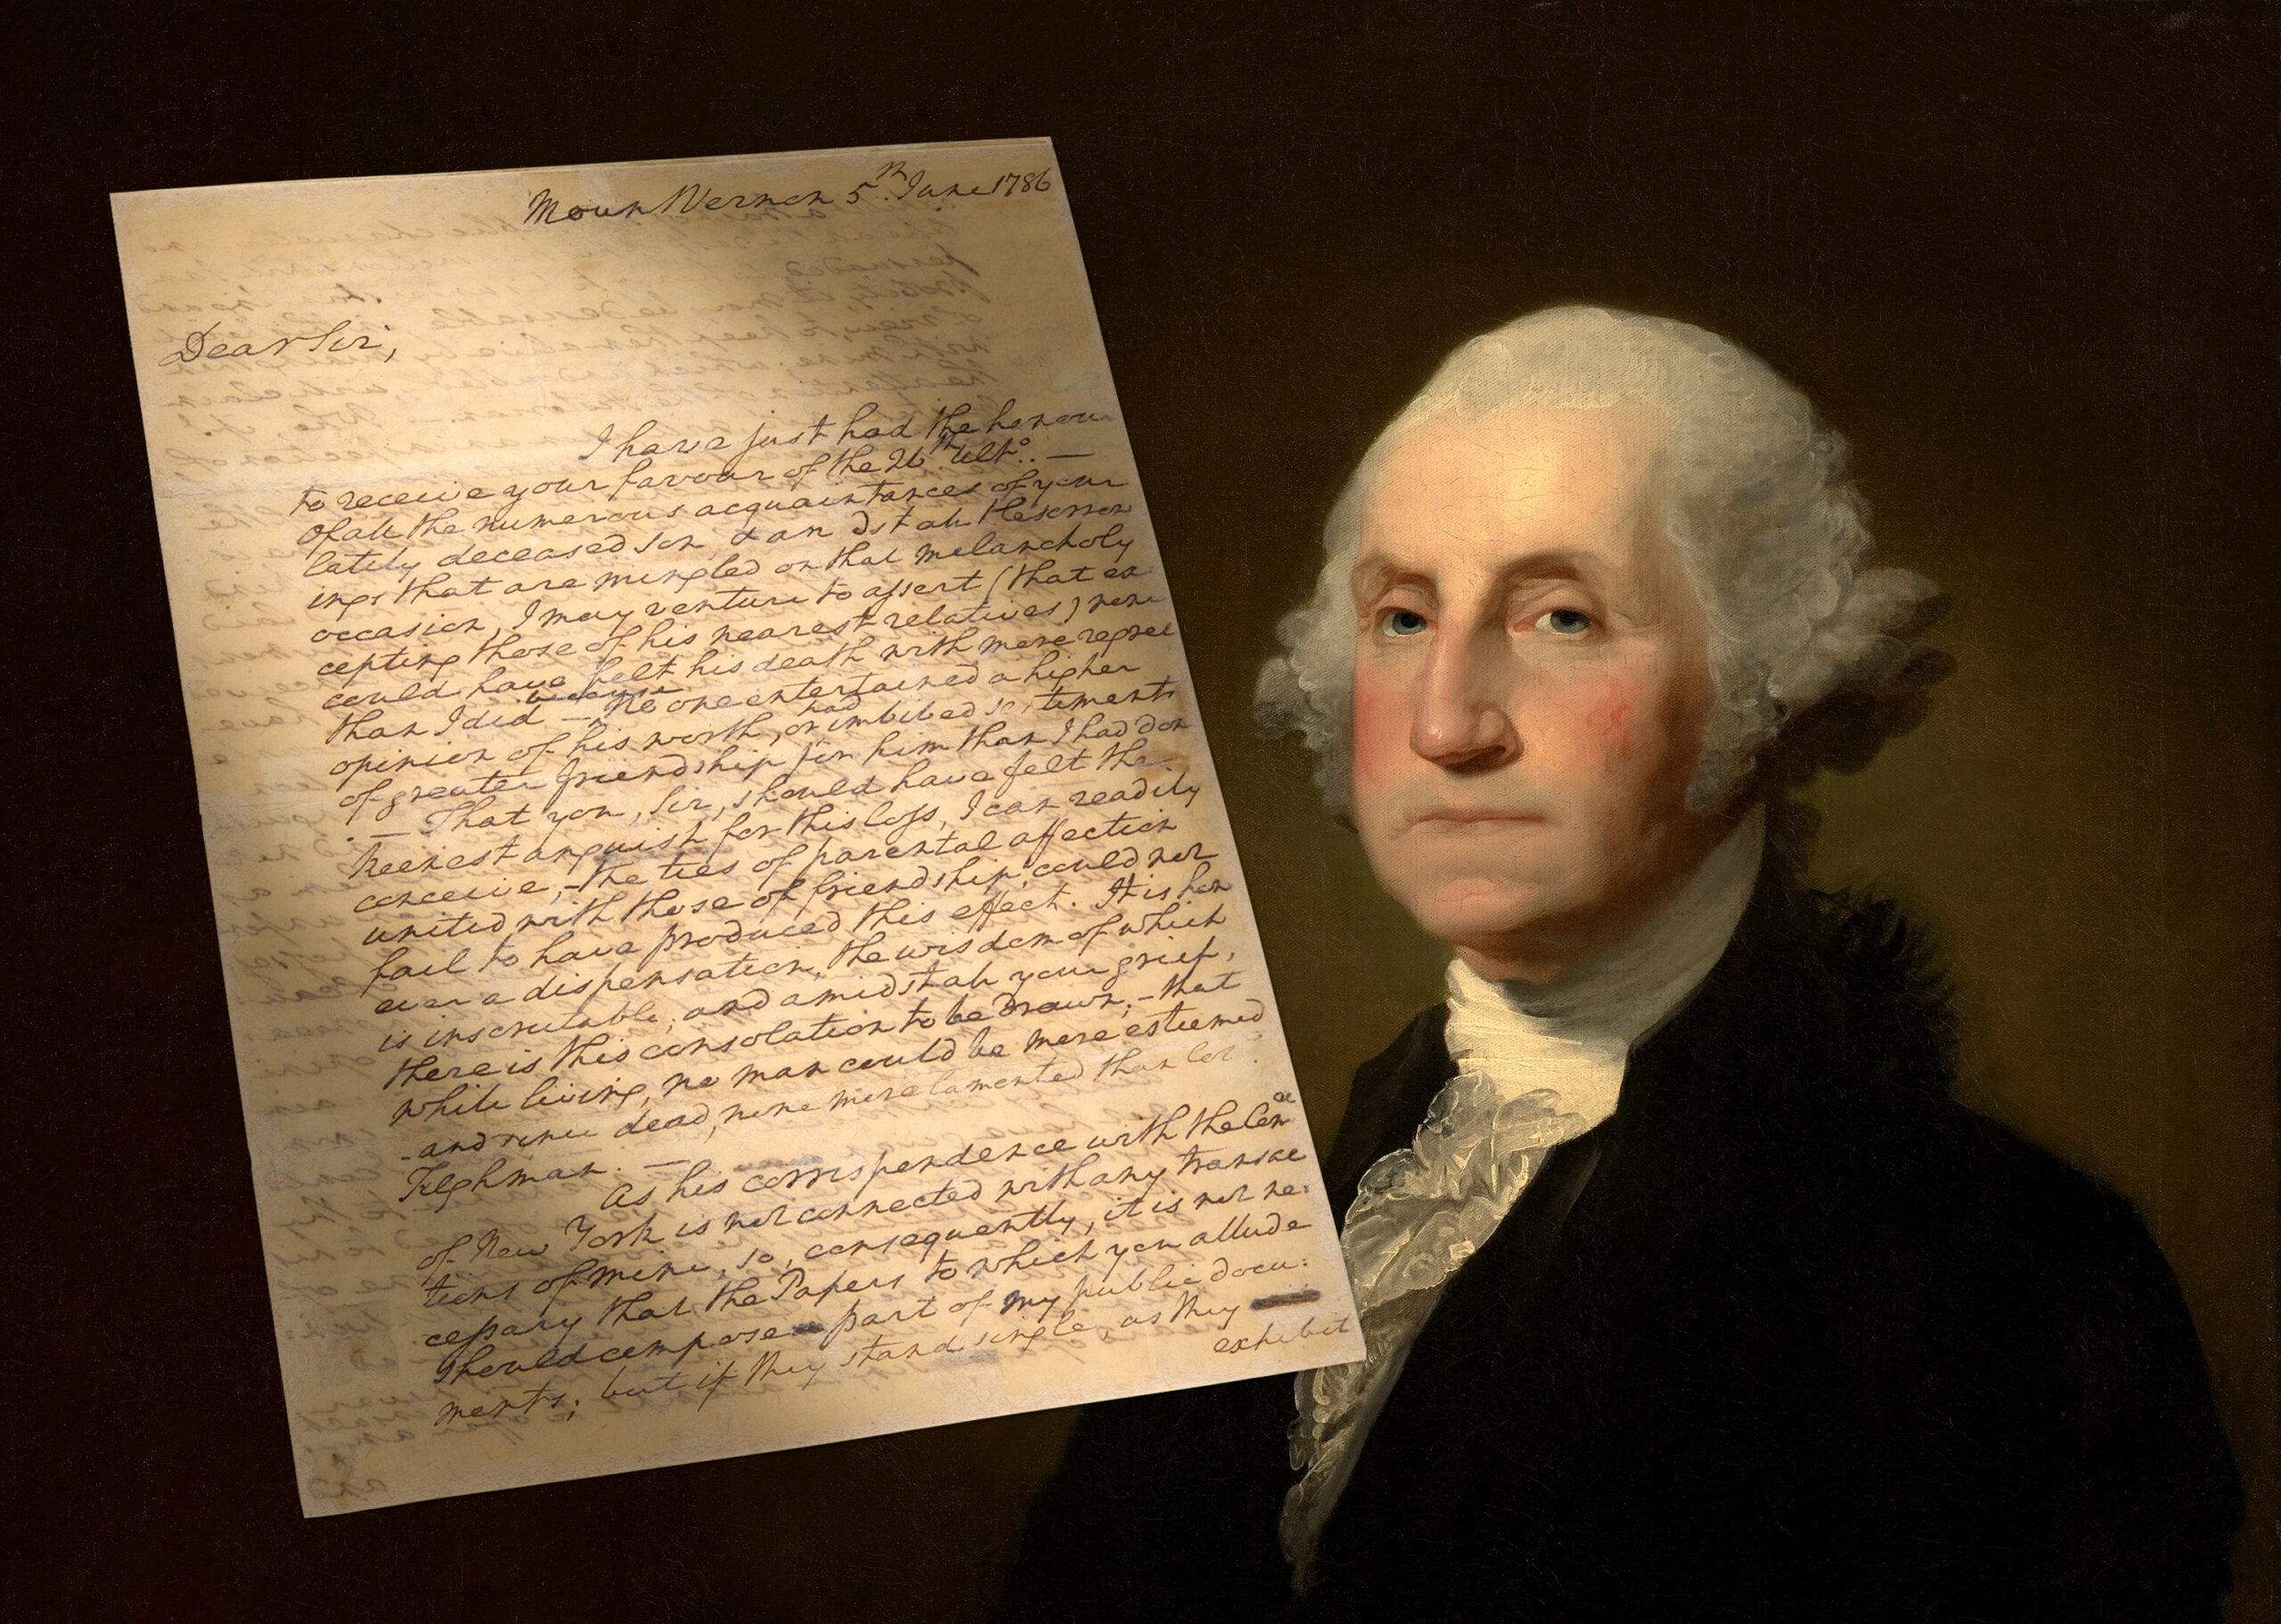 Mount Vernon 5th. June 1786
Dear Sir,
I have just had the honour
to receive your favour of the 26th ulto.. —
Of all the numerous acquaintances of your
lately deceased son, & amidst all the sorrow
ings that are mingled on that melancholy
occasion, I may venture to assert (that ex
cepting those of his nearest relatives) none
could have felt his death with more regret
than I did — because no one entertained a higher
opinion of his worth, or had imbibed sentiments
of greater friendship for him than I had done
. — That you, Sir, should have felt the
keenest anguish for this loss, I can readily
conceive, – the ties of parental affection
united with those of friendship, could not
fail to have produced this effect. It is how
ever a dispensation, the wisdom of which
is inscrutable; and amidst all your grief,
there is this consolation to be drawn, – that
while living, no man could be more esteemed
– and since dead, none more lamented than Colo.
Tilghman. —
As his correspondence with the Comee
of New York is not connected with any transac
tions of mine, so, consequently, it is not ne:
cessary that the Papers to which you allude
should compose part of my public docu:
ments; but if they stand single, as they
exhibit